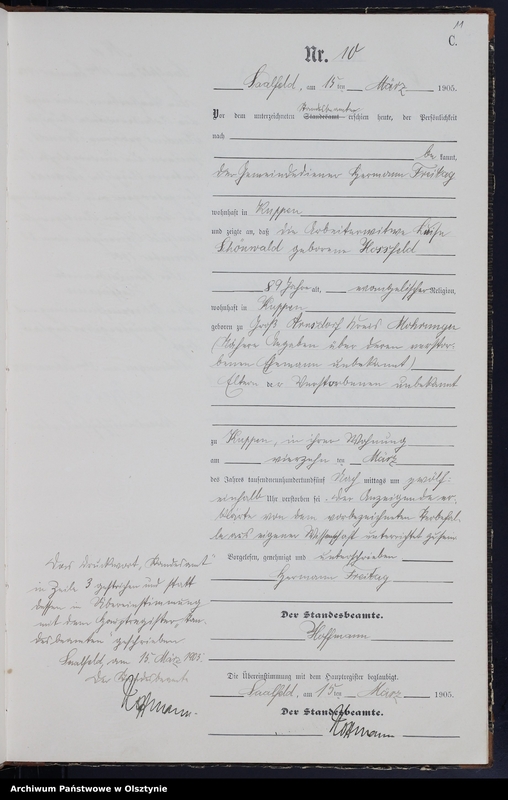 11
C.
Nr. 10
Saalfeld, am 15 ten März 1905.
Standesbeamten
Vor dem unterzeichneten Standesamt erschien heute, der Persönlichkeit
nach
be kannt,
der Gemeindediener Hermann Freitag
wohnhaft in Kuppen
und zeigte an, daß die Arbeiterwitwe Luise
Schönwald geborene Hossfeld
89 Jahre alt, evangelischer Religion,
wohnhaft in Kuppen
geboren zu Groß Arnsdorf Kreis Mohrungen
(Nähere Angaben über deren verstor-
benen Ehemann unbekannt)
Eltern der Verstorbenen unbekannt
zu Kuppen, in ihrer Wohnung
am vierzehn ten März
des Jahres tausendneunhundertfünf Nach mittags um zwölf-
einhalb Uhr verstorben sei. Der Anzeigende er-
klärte von dem vorbezeichneten Sterbefal-
le aus eigener Wissenschaft unterrichtet zu sein
Vorgelesen, genehmigt und unterschrieben
Hermann Freitag
Der Standesbeamte.
Hoffmann
Die Übereinstimmung mit dem Hauptregister beglaubigt.
Saalfeld, am 15 ten März 1905.
Der Standesbeamte.
Hoffmann
Das Druckwort "Standesamt"
in Zeile 3 gestrichen und statt
dessen in Übereinstimmung
mit dem Hauptregister "Stan-
desbeamten" geschrieben.
Saalfeld, am 15. März 1905.
Der Standesbeamte
Hoffmann.
Archiwum Państwowe w Olsztynie